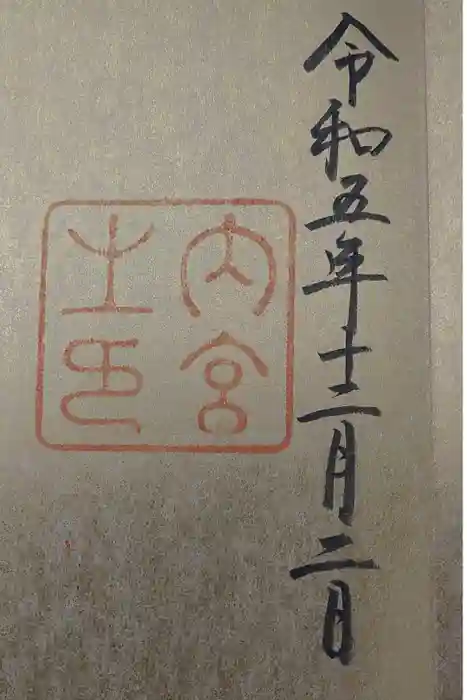 令和五年十二月二日
内宮之印